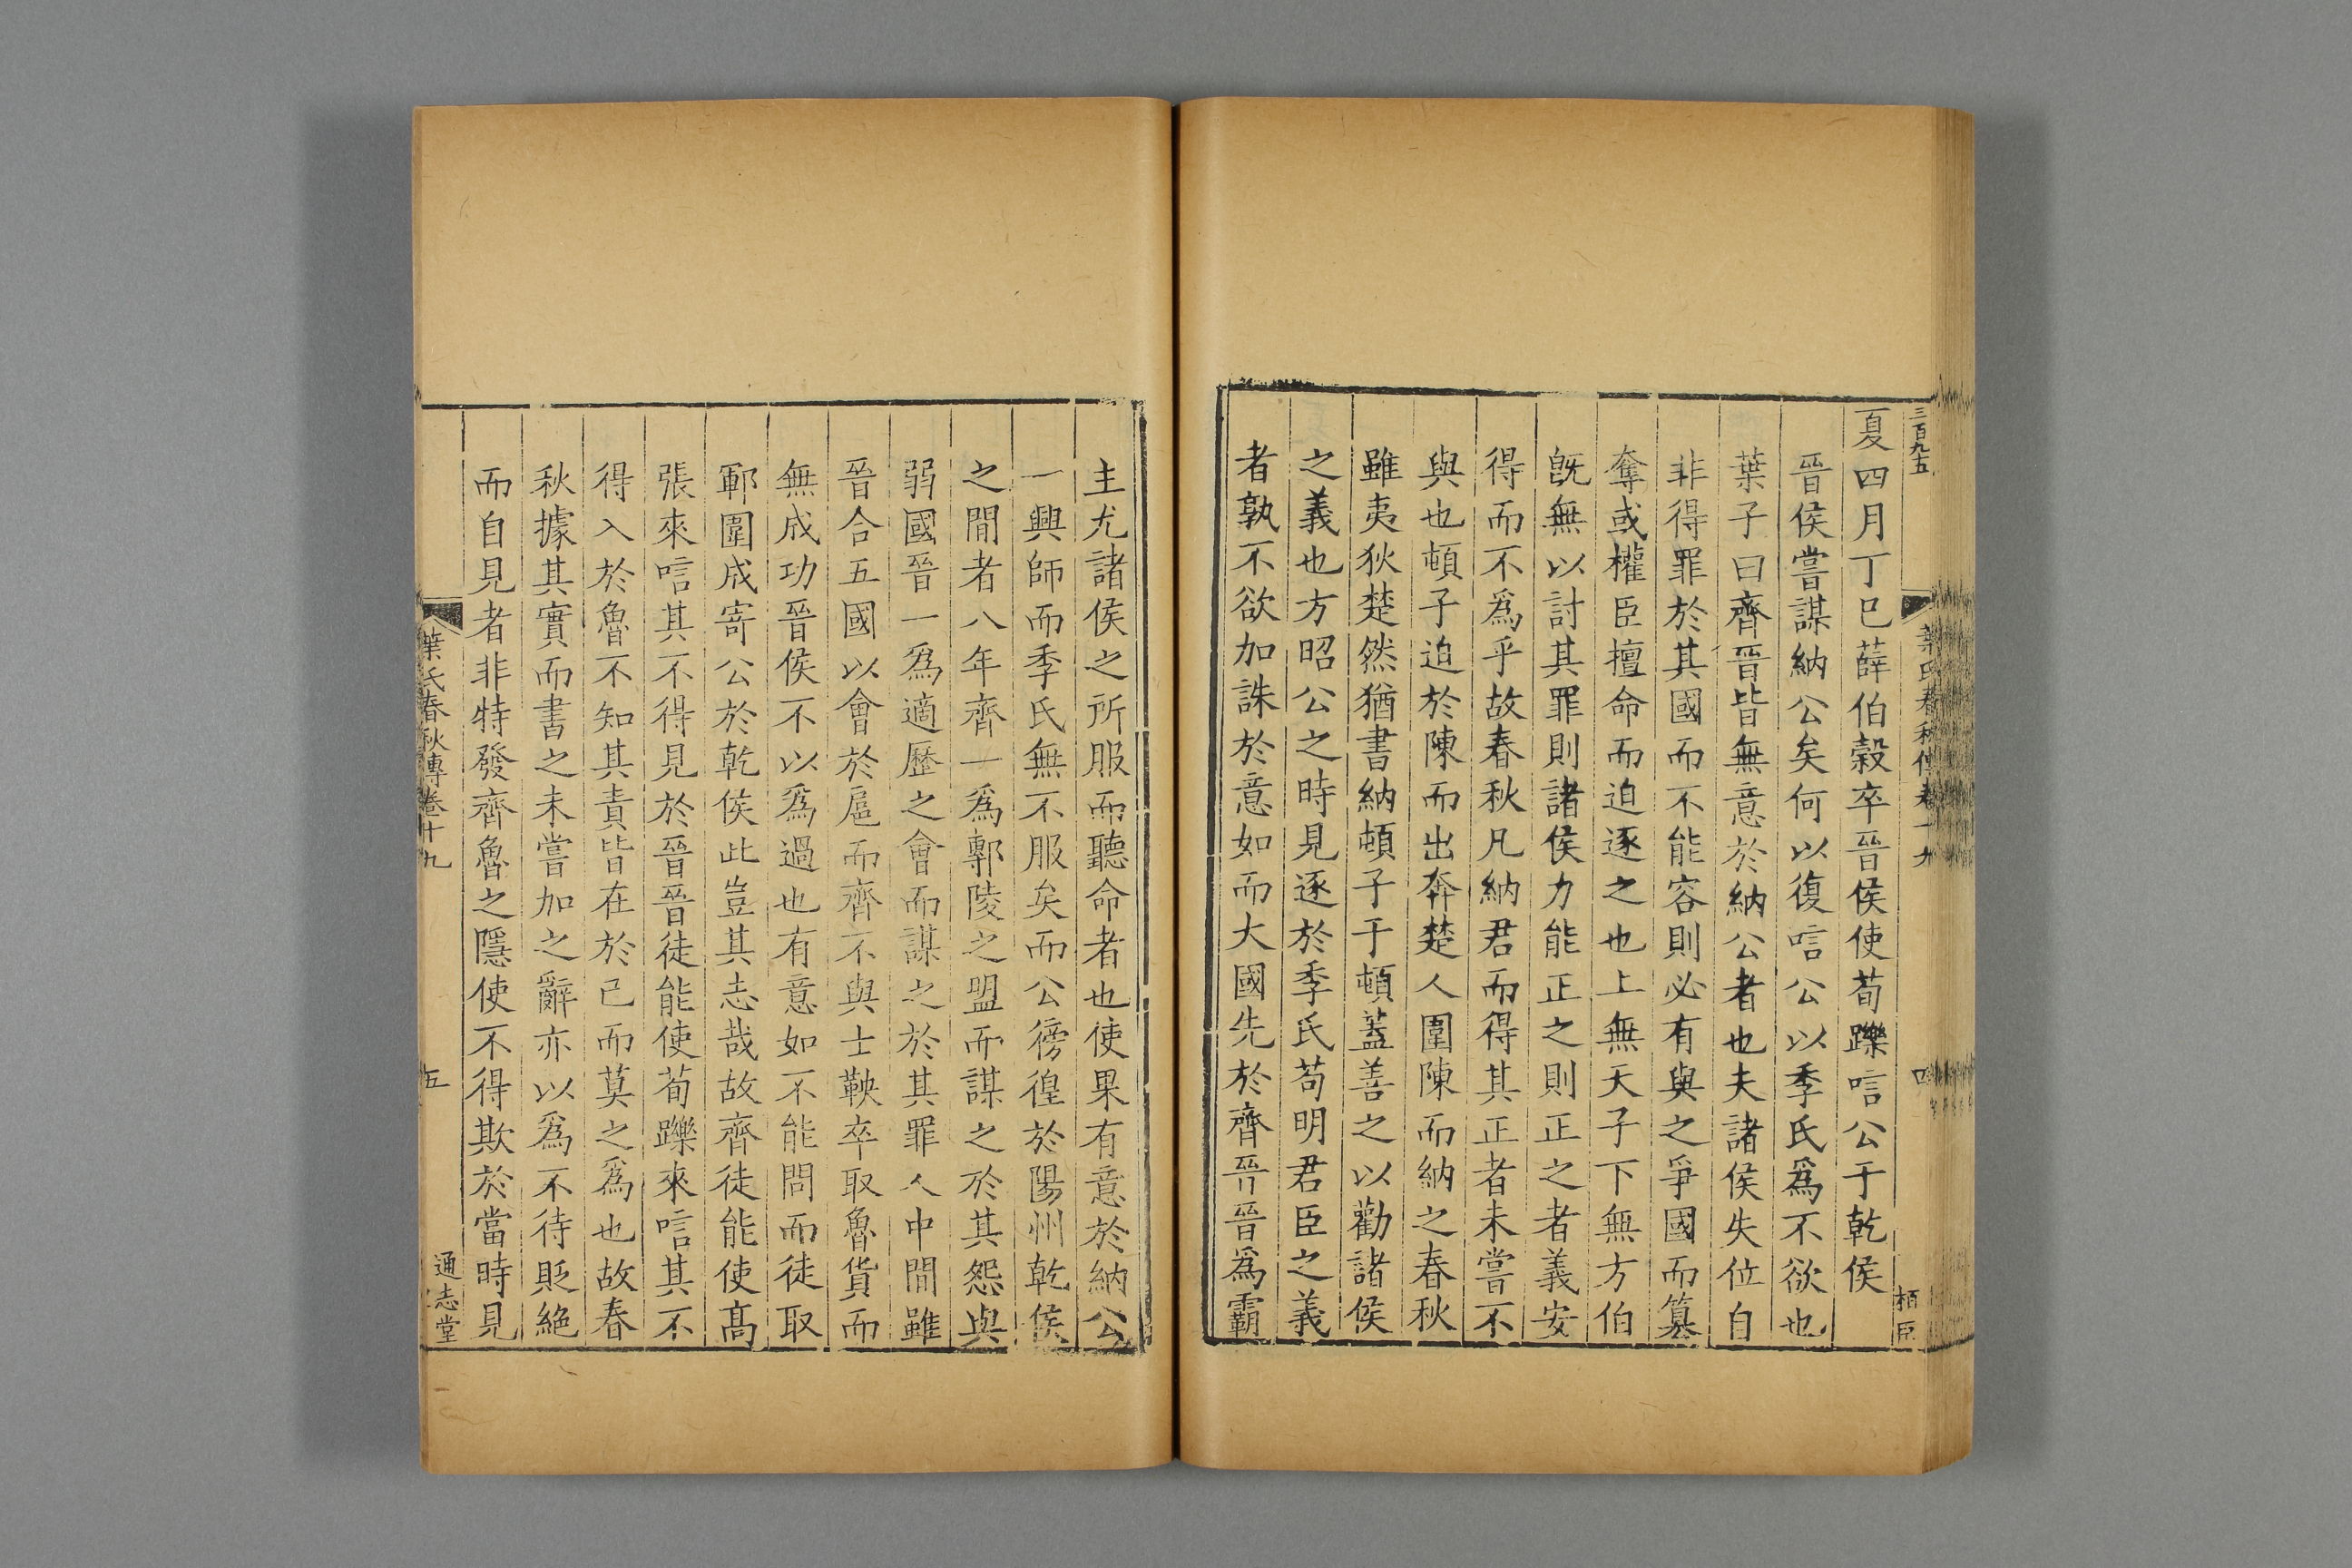 三百九五
葉氏春秋傳卷十九
四
栢臣
夏四月丁巳薛伯穀卒晉侯使荀躒唁公于乾侯
晉侯嘗謀納公矣何以復唁公以季氏爲不欲也
葉子曰齊晉皆無意於納公者也夫諸侯失位自
非得罪於其國而不能容則必有與之爭國而篡
奪或權臣擅命而迫逐之也上無天子下無方伯
旣無以討其罪則諸侯力能正之則正之者義安
得而不爲乎故春秋凡納君而得其正者未嘗不
與也頓子迫於陳而出奔楚人圍陳而納之春秋
雖夷狄楚然猶書納頓子于頓蓋善之以勸諸侯
之義也方昭公之時見逐於季氏苟明君臣之義
者孰不欲加誅於意如而大國先於齊晉晉爲霸
主尤諸侯之所服而聽命者也使果有意於納公
一興師而季氏無不服矣而公徬徨於陽州乾侯
之間者八年齊一爲鄟陵之盟而謀之於其怨與
弱國晉一爲適歷之會而謀之於其罪人中間雖
晉合五國以會於扈而齊不與士鞅卒取魯貨而
無成功晉侯不以爲過也有意如不能問而徒取
鄆圍成寄公於乾侯此豈其志哉故齊徒能使髙
張來唁其不得見於晉晉徒能使荀躒來唁其不
得入於魯不知其責皆在於已而莫之爲也故春
秋據其實而書之未嘗加之辭亦以爲不待貶絶
而自見者非特發齊魯之隱使不得欺於當時見
葉氏春秋傳卷十九
五
通志堂